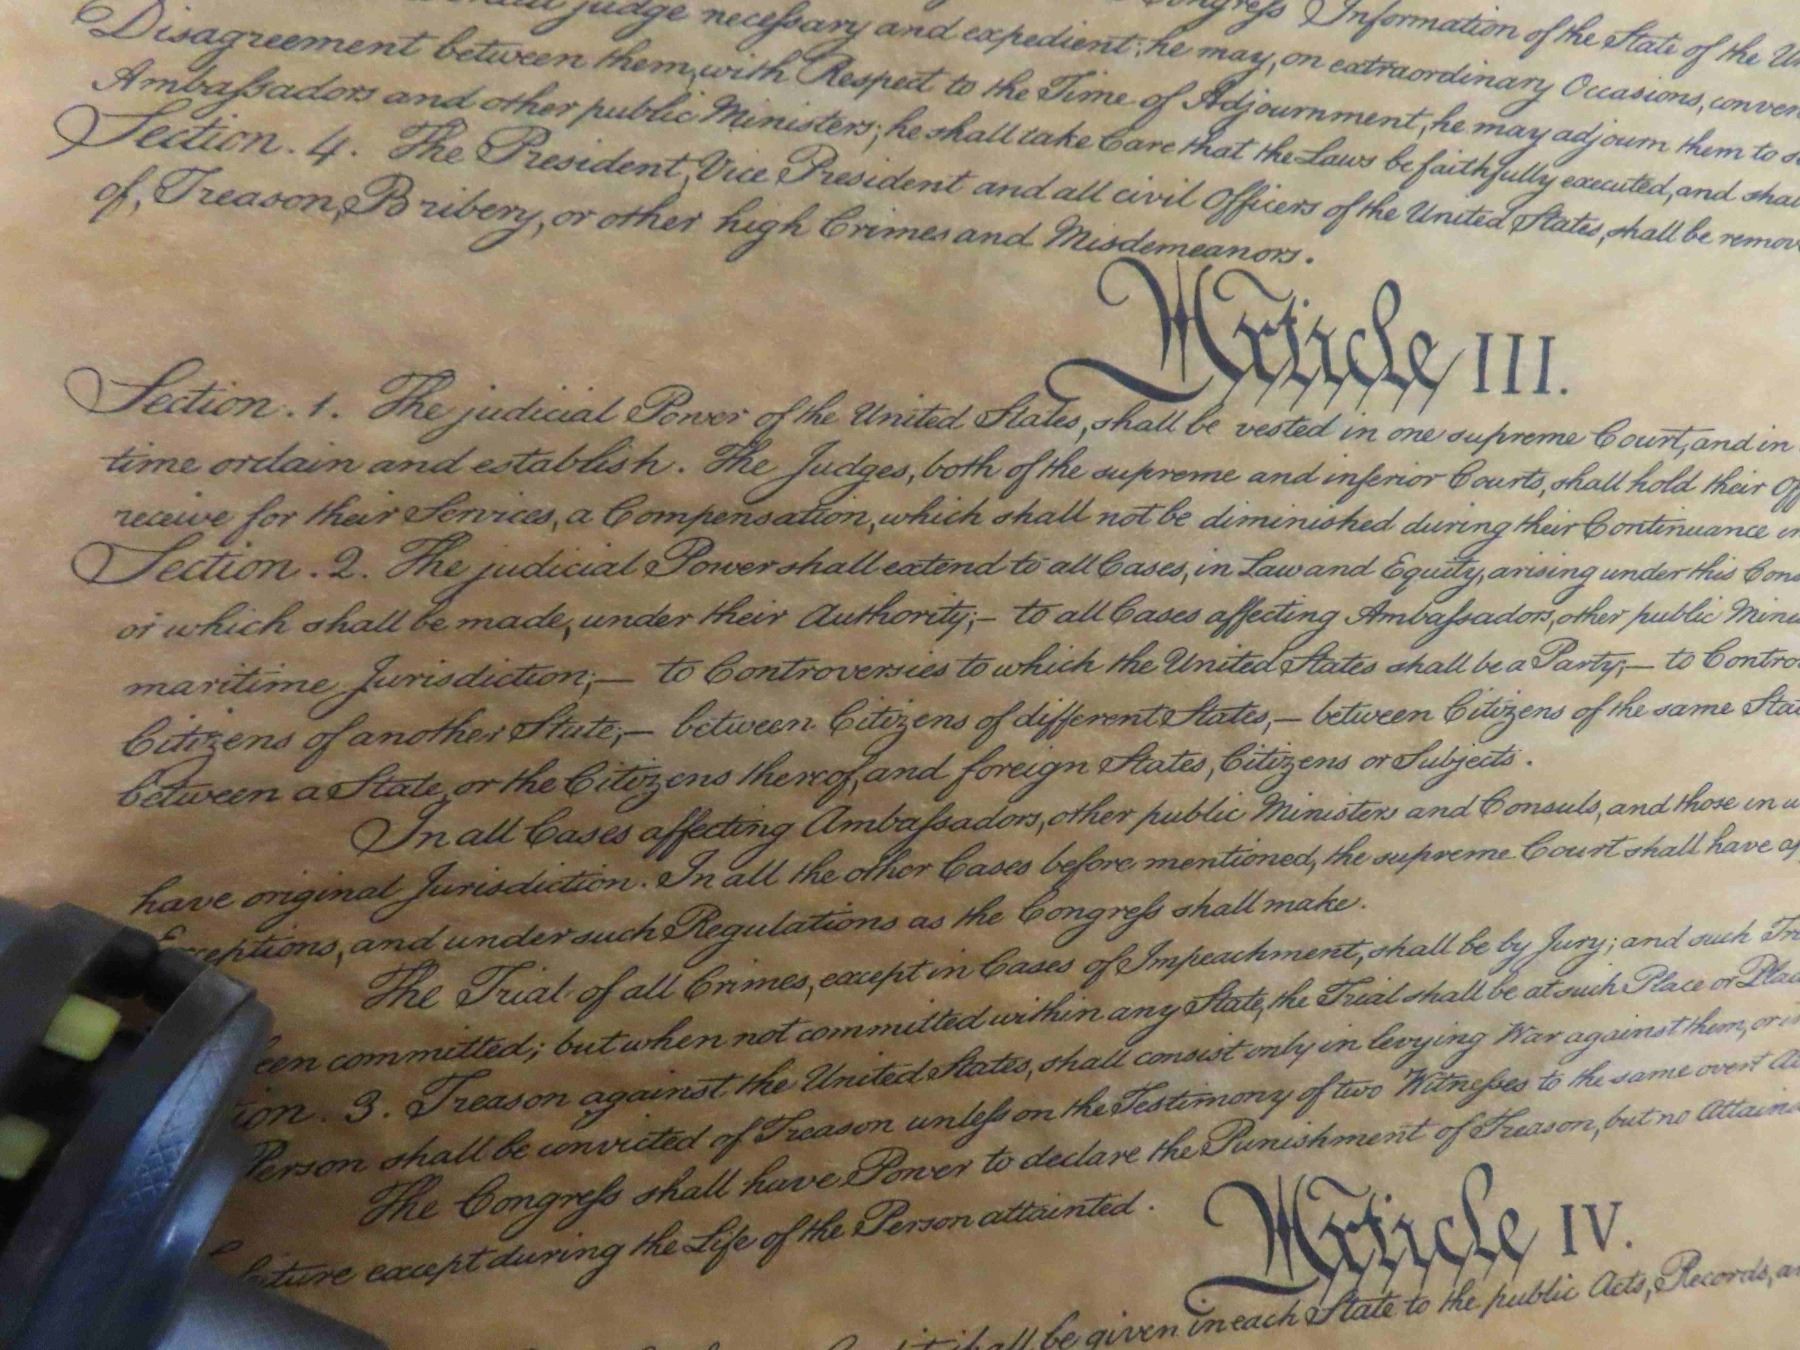 judge necessary and expedient; he may, on extraordinary Occasions, conven
Congress Information of the State of the U
Disagreement between them, with Respect to the Time of Adjournment, he may adjourn them to s
Ambassadors and other public Ministers; he shall take Care that the Laws be faithfully executed, and shal
Section. 4. The President, Vice President and all civil Officers of the United States, shall be remov
of, Treason, Bribery, or other high Crimes and Misdemeanors.
Article III.
Section. 1. The judicial Power of the United States, shall be vested in one supreme Court, and in
time ordain and establish. The Judges, both of the supreme and inferior Courts, shall hold their Off
receive for their Services, a Compensation, which shall not be diminished during their Continuance in
Section. 2. The judicial Power shall extend to all Cases, in Law and Equity, arising under this Cons
or which shall be made, under their Authority;— to all Cases affecting Ambassadors, other public Minis
maritime Jurisdiction;— to Controversies to which the United States shall be a Party;— to Contro
Citizens of another State;— between Citizens of different States,— between Citizens of the same Stat
between a State, or the Citizens thereof, and foreign States, Citizens or Subjects.
In all Cases affecting Ambassadors, other public Ministers and Consuls, and those in w
have original Jurisdiction. In all the other Cases before mentioned, the supreme Court shall have ap
Exceptions, and under such Regulations as the Congress shall make.
The Trial of all Crimes, except in Cases of Impeachment, shall be by Jury; and such Tr
een committed; but when not committed within any State, the Trial shall be at such Place or Plac
ion. 3. Treason against the United States, shall consist only in levying War against them, or in
Person shall be convicted of Treason unless on the Testimony of two Witnesses to the same overt Ac
The Congress shall have Power to declare the Punishment of Treason, but no Attaind
feiture except during the Life of the Person attainted.
Article IV.
shall be given in each State to the public Acts, Records, an